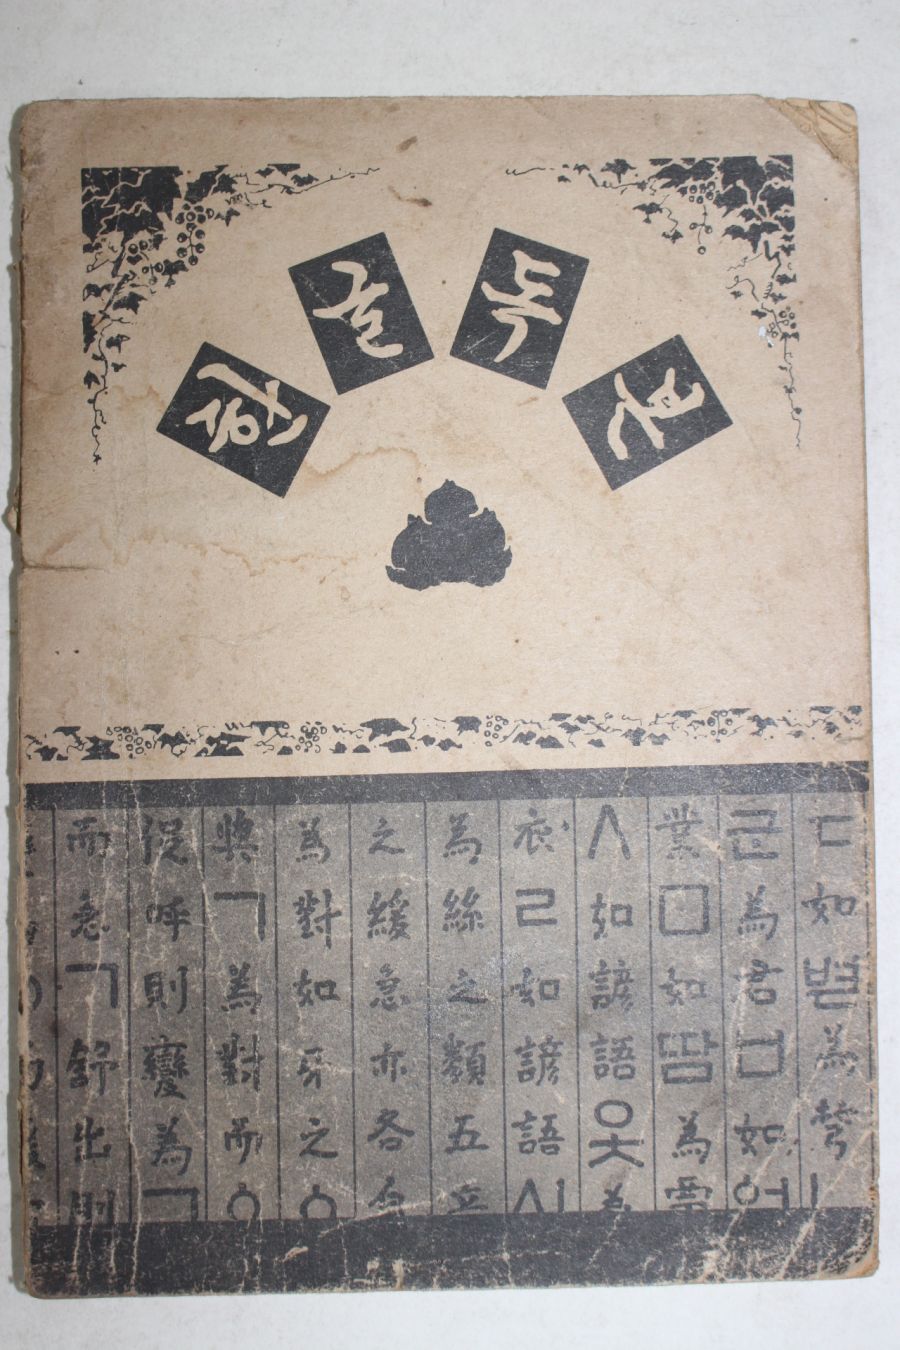 한글독본
ㄷ如볃為彆ㄴ
군為君ㅂ如업
業ㅁ如땀為覃
ㅅ如諺語옷為
衣ㄹ如諺語실
為絲之類五音
之緩急亦各自
為對如牙之ㆁ
與ㄱ為對而ㆁ
促呼則變為ㄱ
而急ㄱ舒出則